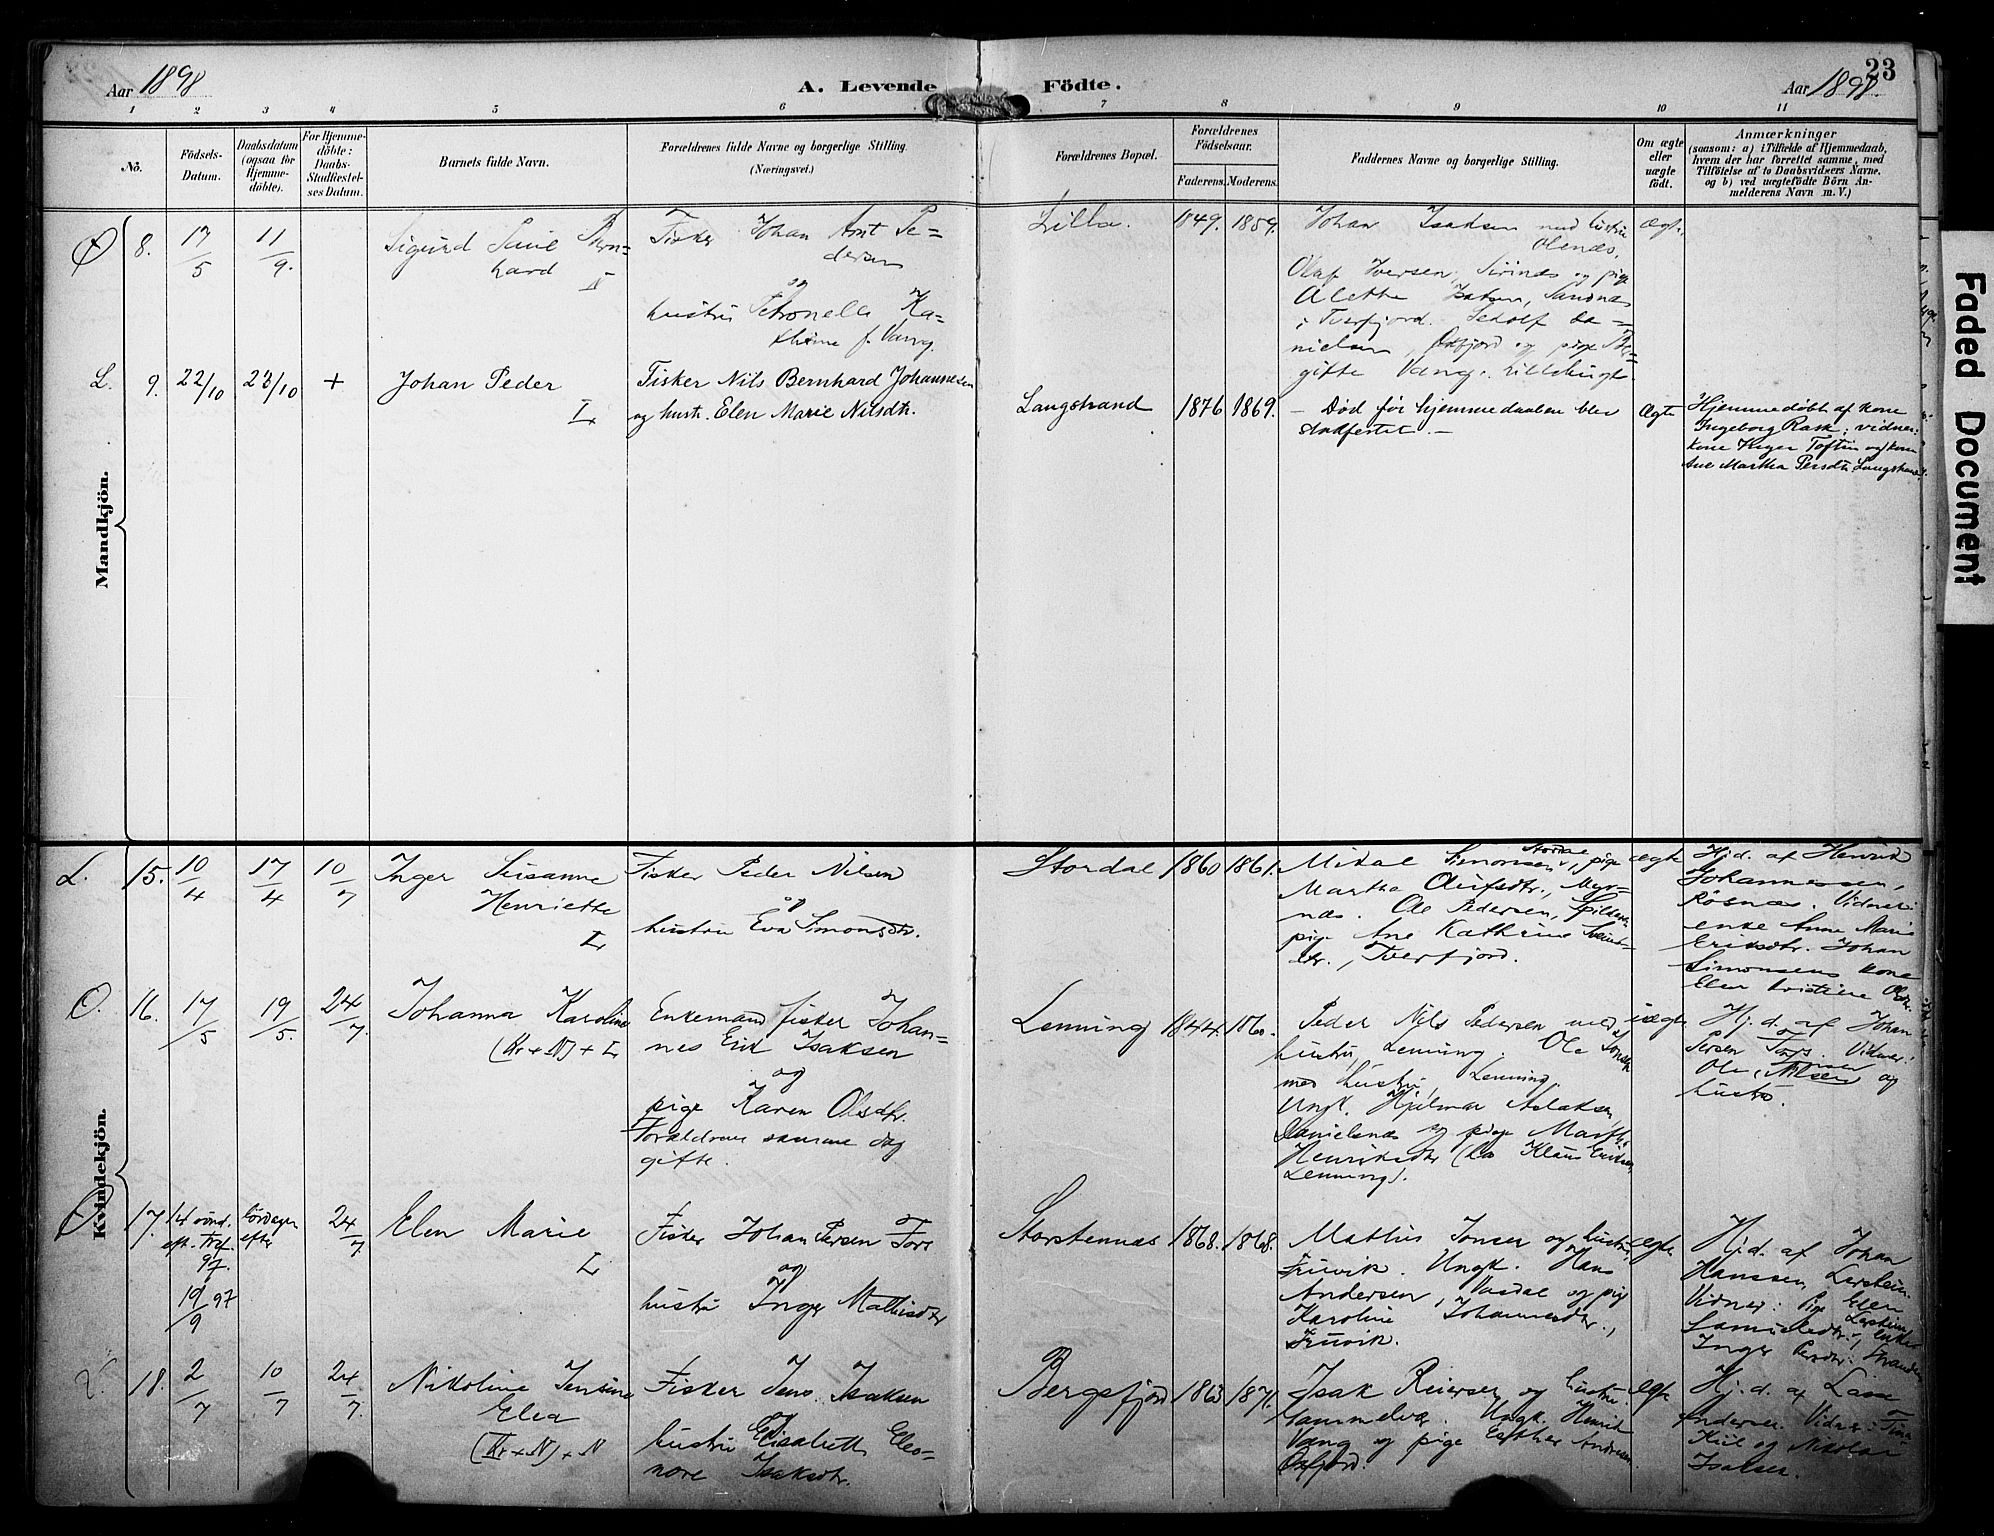 Aar 1898
A. Levende
Födte.
Aar 1898
23
1 2 3 4 5 6 7 8 9 10 11
No.
Födsels-
Datum.
Daabsdatum
(ogsaa för
Hjemme-
döbte).
For Hjemme-
döbte:
Daabs-
Stadfæstel-
ses Datum.
Barnets fulde Navn.
Forældrenes fulde Navne og borgerlige Stilling.
(Næringsvei.)
Forældrenes Bopæl.
Forældrenes
Födselsaar.
Faderens. Moderens.
Faddernes Navne og borgerlige Stilling.
Om ægte
eller
uægte
födt.
Anmærkninger
(saasom: a) i Tilfælde af Hjemmedaab,
hvem der har forrettet samme, med
Tilföielse af to Daabsvidners Navne,
og b) ved uægtefödte Börn An-
melderens Navn m. V.)
Mandkjön.
8.
17/5
11/9.
Sigurd Bern-
hard
Fisker Johan Arnt Pe-
dersen
og
hustru Petronella Ka-
thrine f. Vang.
Lilla.
1849. 1859.
Johan Isaksen med hustru
Olenæs.
Olaf Iversen, og pige
Alette Isaksen, Sandnæs
i Tverfjord. Da-
nielsen, Oxfjord og pige
gifte Vang.
Ægte.
L. 9.
22/10
23/10
+
Johan Peder
L
Fisker Nils Bernhard Johannesen
og hust. Elen Marie Nilsdtr.
Langstrand
1876 1869.
– Död för hjemmedaaben blev
stadfestet. –
Ægte
Hjemmedöbt af kone
Ingeborg Rask; vidner:
kone Toftin og kone
Ane Martha Persdtr. Langstrand.
Kvindekjön.
L. 15.
10/4
17/4
10/7
Inger Susanne
Henriette
L
Fisker Peder Nilsen
og
hustru Eva Simonsdtr.
Stordal
1860 1861.
Mikal Simonsen, Stordal, pige
Martha Olufsdtr., Myr-
næs. Ole Pedersen,
pige Ane Kathrine
dtr., Tverfjord.
ægte
Hj.d. af Henrik
Johannessen,
Rösnæs. Vidner:
enke Anne Marie
Eriksdtr. Johan
Simonsens kone
Elen
O. 16.
17/5
19/5.
24/7.
Johanna Karoline
(Kv + N) + L
Enkemand fisker Johan-
nes Erik Isaksen
og
pige Karen Olsdtr.
Forældrene samme dag
gifte.
Lenning
1844. 1860.
Peder Nils Pedersen med
hustru, Lenning. Ole
med hustru, Lenning.
Ungk. Hjalmar Aslaksen
Danielsnæs og pige
Henriksdtr Klaus Eriksen
Lenning).
uægte
Hj.d. af Johan
Persen Fors. Vidner:
Ole Nilsen og
hustru.
17.
14 sönd.
eft. Tref.
97.
19/9 97
Lördagen
efter
24/7.
Elen Marie
L
Fisker Johan Persen Fors
og
hustru Inger Mathisdtr
Storstennæs
1868. 1868.
Mathis Jonsen og hustru,
Fruvik. Ungk. Hans
Andersen, og pige
Karoline Johannesdtr.,
Fruvik.
ægte
Hj.d. af Johan
Hanssen,
Vidner: Pige Elen
Samuelsdtr., enke
Inger Persdtr.
18.
2/7
10/7
24/7.
Nikoline Jensine
Elea
(Kv + N) + N
Fisker Jens Isaksen
og
hustru Elisabeth Eleo-
nore Isaksdtr.
Bergsfjord
1863 1871.
Isak Reiersen og hustru
Gammelvær. Ungk. Henrik
Vang og pige Esther Andersen
Oxfjord.
ægte
Hj.d. af Lasse
Andersen. Vidner: Tina
Kiil og Nikolai
Isaksen.
Faded Document